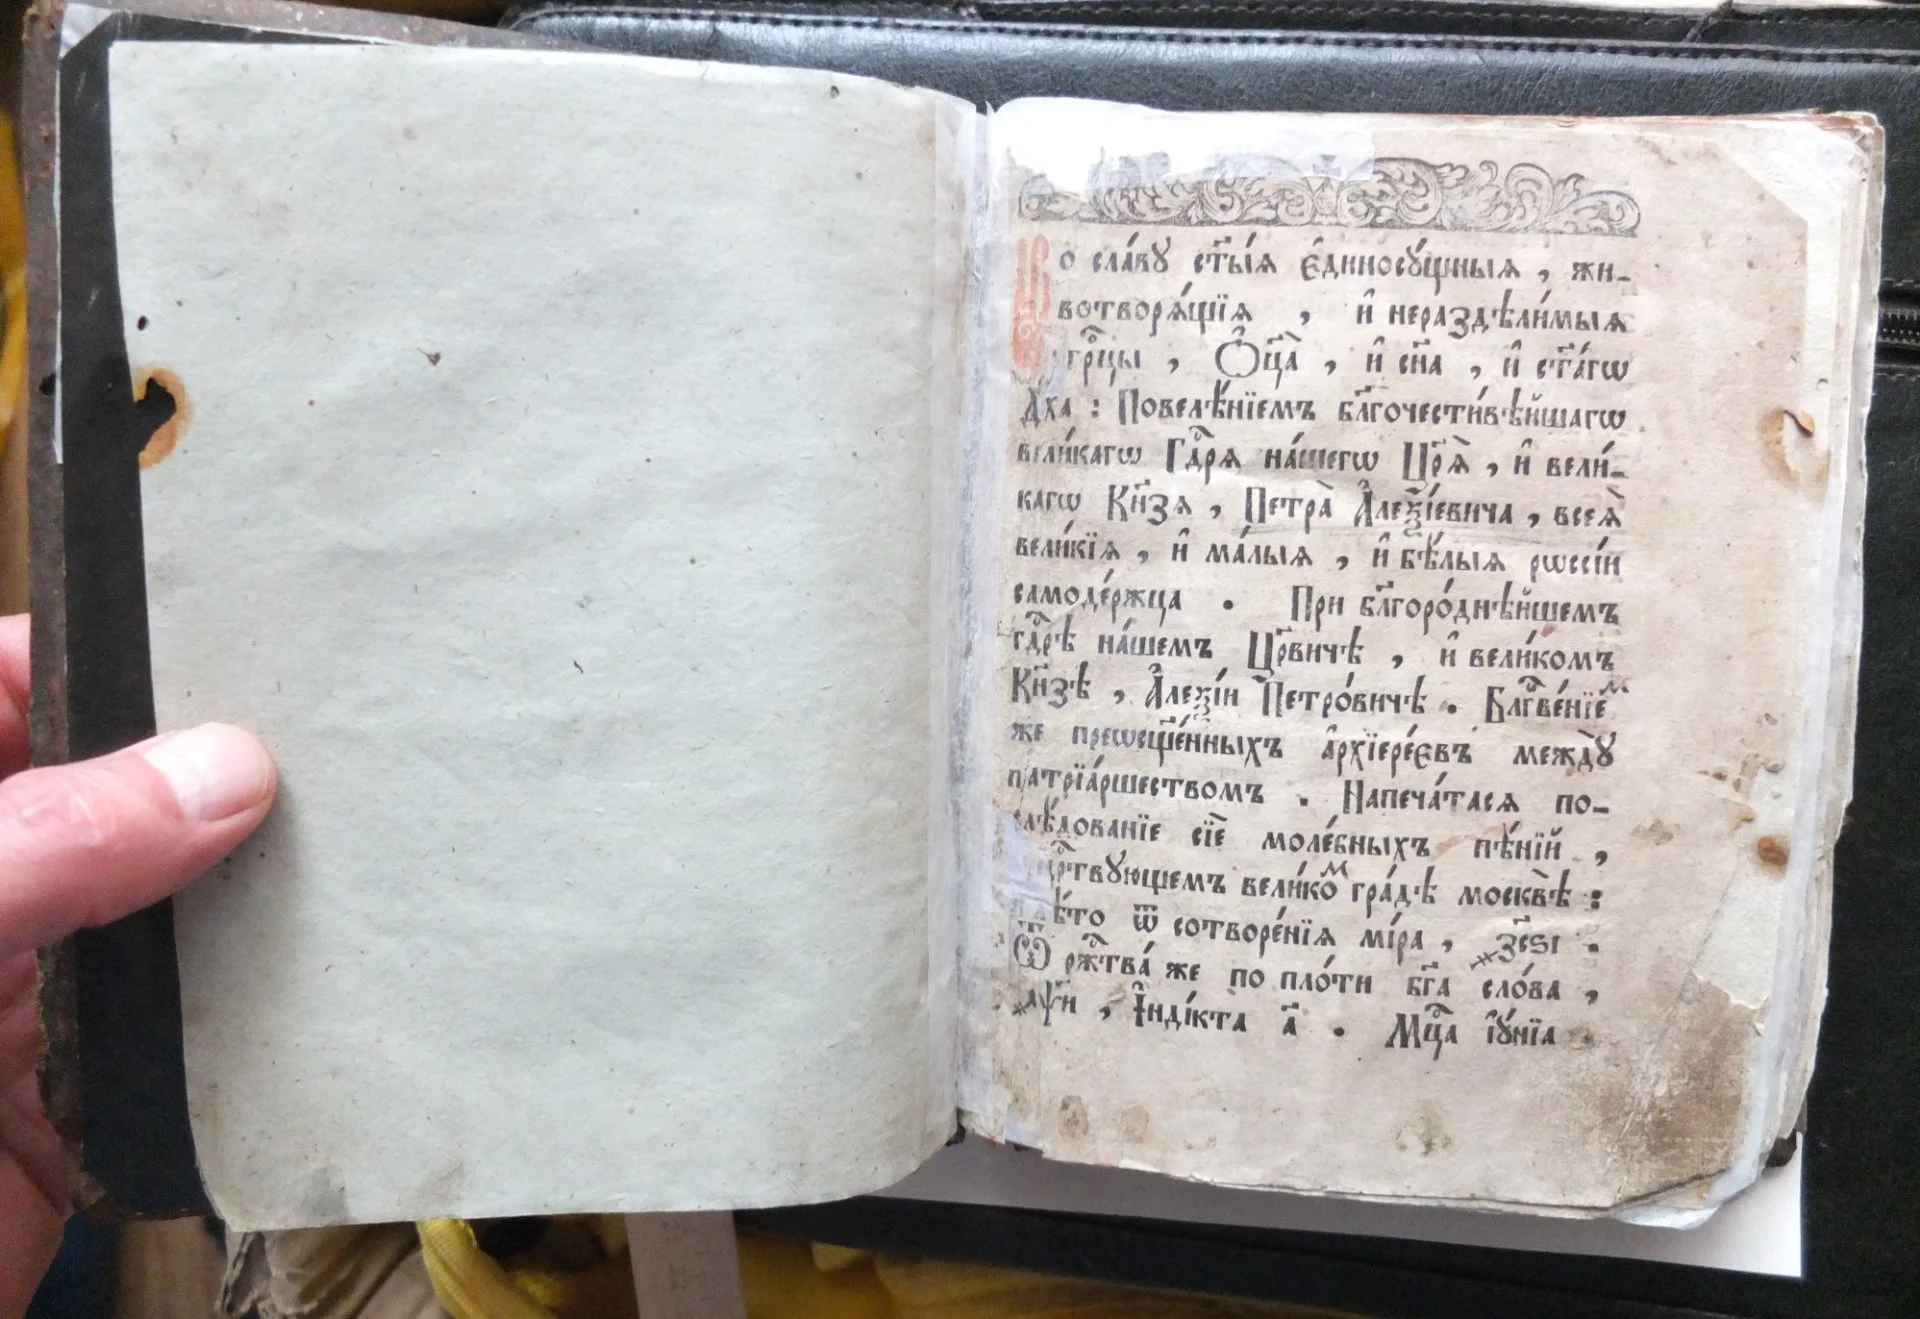 Во сла́вꙋ ст҃ы́ѧ є҆диносꙋ́щныѧ , жи-
вотворѧ́щїѧ , и҆ нераздѣли́мыѧ
трⷪ҇цы , Ѻ҆ц҃а̀ , и҆ сн҃а , и҆ ст҃а́гѡ
Дх҃а : Повелѣ́нїемъ бл҃гочести́вѣйшагѡ
вели́кагѡ Гдⷭ҇рѧ на́шегѡ Цр҃ѧ̀ , и҆ вели́-
кагѡ Кн҃зѧ , Петра̀ А҆леѯі́евича , всеѧ̀
вели́кїѧ , и҆ ма́лыѧ , и҆ бѣ́лыѧ рѡссі́и
самоде́ржца . При бл҃горо́днѣйшемъ
гдⷭ҇рѣ на́шемъ Цр҃вичѣ , и҆ вели́комъ
Кн҃зѣ , А҆леѯі́и Петро́вичѣ . Блгⷭ҇ве́нїеⷨ
же преѡсщ҃е́нныхъ а҆рхїере́євъ междꙋ̀
патрїа́ршествомъ . Напеча́тасѧ по-
слѣ́дованїе сїѐ моле́бныхъ пѣ́нїй ,
црⷭ҇твꙋющемъ вели́коⷨ гра́дѣ москвѣ̀ :
лѣ́то ѿ сотворе́нїѧ мі́ра , ҂зс҃ѕі .
Ѿ ржⷭ҇тва́ же по пло́ти бг҃а сло́ва ,
҂аѱ҃и , І҆нді́кта а҃ . Мцⷭ҇а і҆ꙋ́нїа .